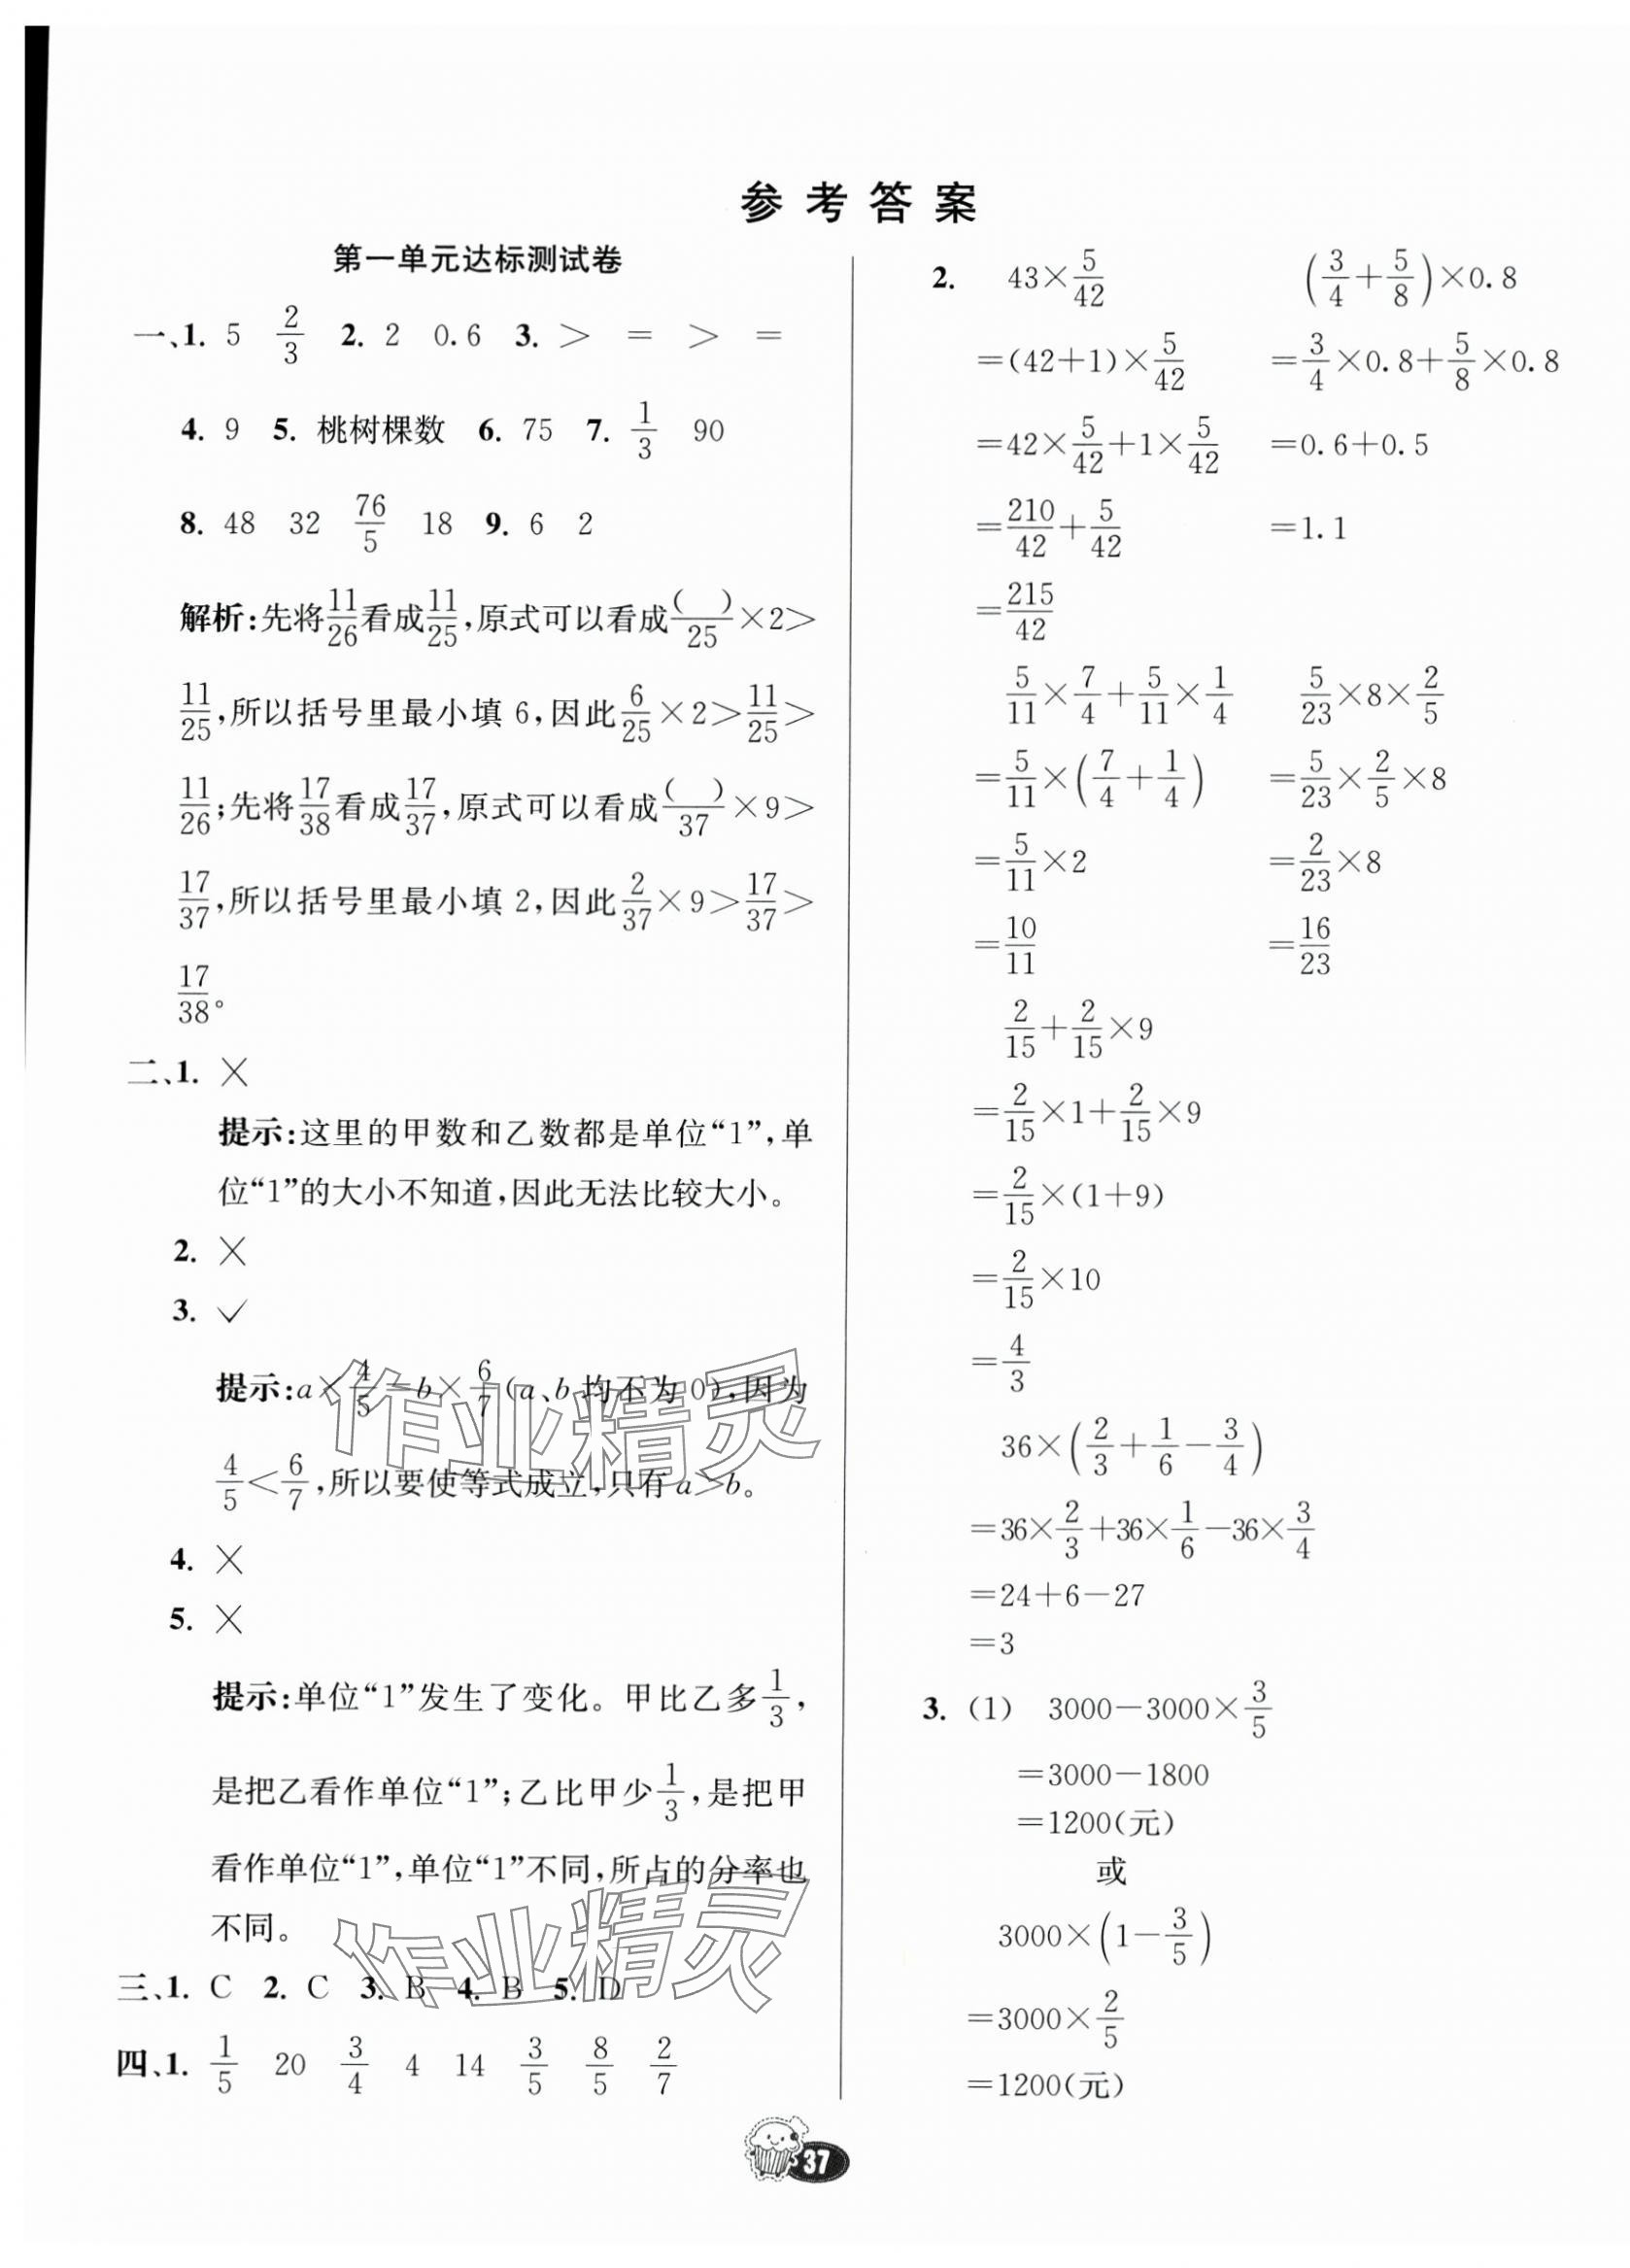 参考答案
第一单元达标测试卷
一、1. 5 2/3 2. 2 0.6 3. > = > =
4. 9 5. 桃树棵数 6. 75 7. 1/3 90
8. 48 32 76/5 18 9. 6 2
解析:先将11/26看成11/25,原式可以看成( )/25×2>
11/25,所以括号里最小填6,因此6/25×2>11/25>
11/26;先将17/38看成17/37,原式可以看成( )/37×9>
17/37,所以括号里最小填2,因此2/37×9>17/37>
17/38。
二、1. ×
提示:这里的甲数和乙数都是单位“1”,单
位“1”的大小不知道,因此无法比较大小。
2. ×
3. ✓
提示:a×4/5=b×6/7(a、b均不为0),因为
4/5<6/7,所以要使等式成立,只有a>b。
4. ×
5. ×
提示:单位“1”发生了变化。甲比乙多1/3,
是把乙看作单位“1”;乙比甲少1/3,是把甲
看作单位“1”,单位“1”不同,所占的分率也
不同。
三、1. C 2. C 3. B 4. B 5. D
四、1. 1/5 20 3/4 4 14 3/5 8/5 2/7
2. 43×5/42 (3/4+5/8)×0.8
=(42+1)×5/42 =3/4×0.8+5/8×0.8
=42×5/42+1×5/42 =0.6+0.5
=210/42+5/42 =1.1
=215/42
5/11×7/4+5/11×1/4 5/23×8×2/5
=5/11×(7/4+1/4) =5/23×2/5×8
=5/11×2 =2/23×8
=10/11 =16/23
2/15+2/15×9
=2/15×1+2/15×9
=2/15×(1+9)
=2/15×10
=4/3
36×(2/3+1/6-3/4)
=36×2/3+36×1/6-36×3/4
=24+6-27
=3
3. (1) 3000-3000×3/5
=3000-1800
=1200(元)
或
3000×(1-3/5)
=3000×2/5
=1200(元)
37
作业精灵
作业精灵